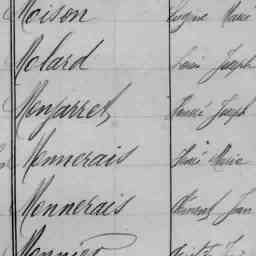 Moison Eugène Marie
Molard Louis Joseph
Monjarret Joseph
Monnerais Aimé Marie
Monnerais Clément Jean
Monnier